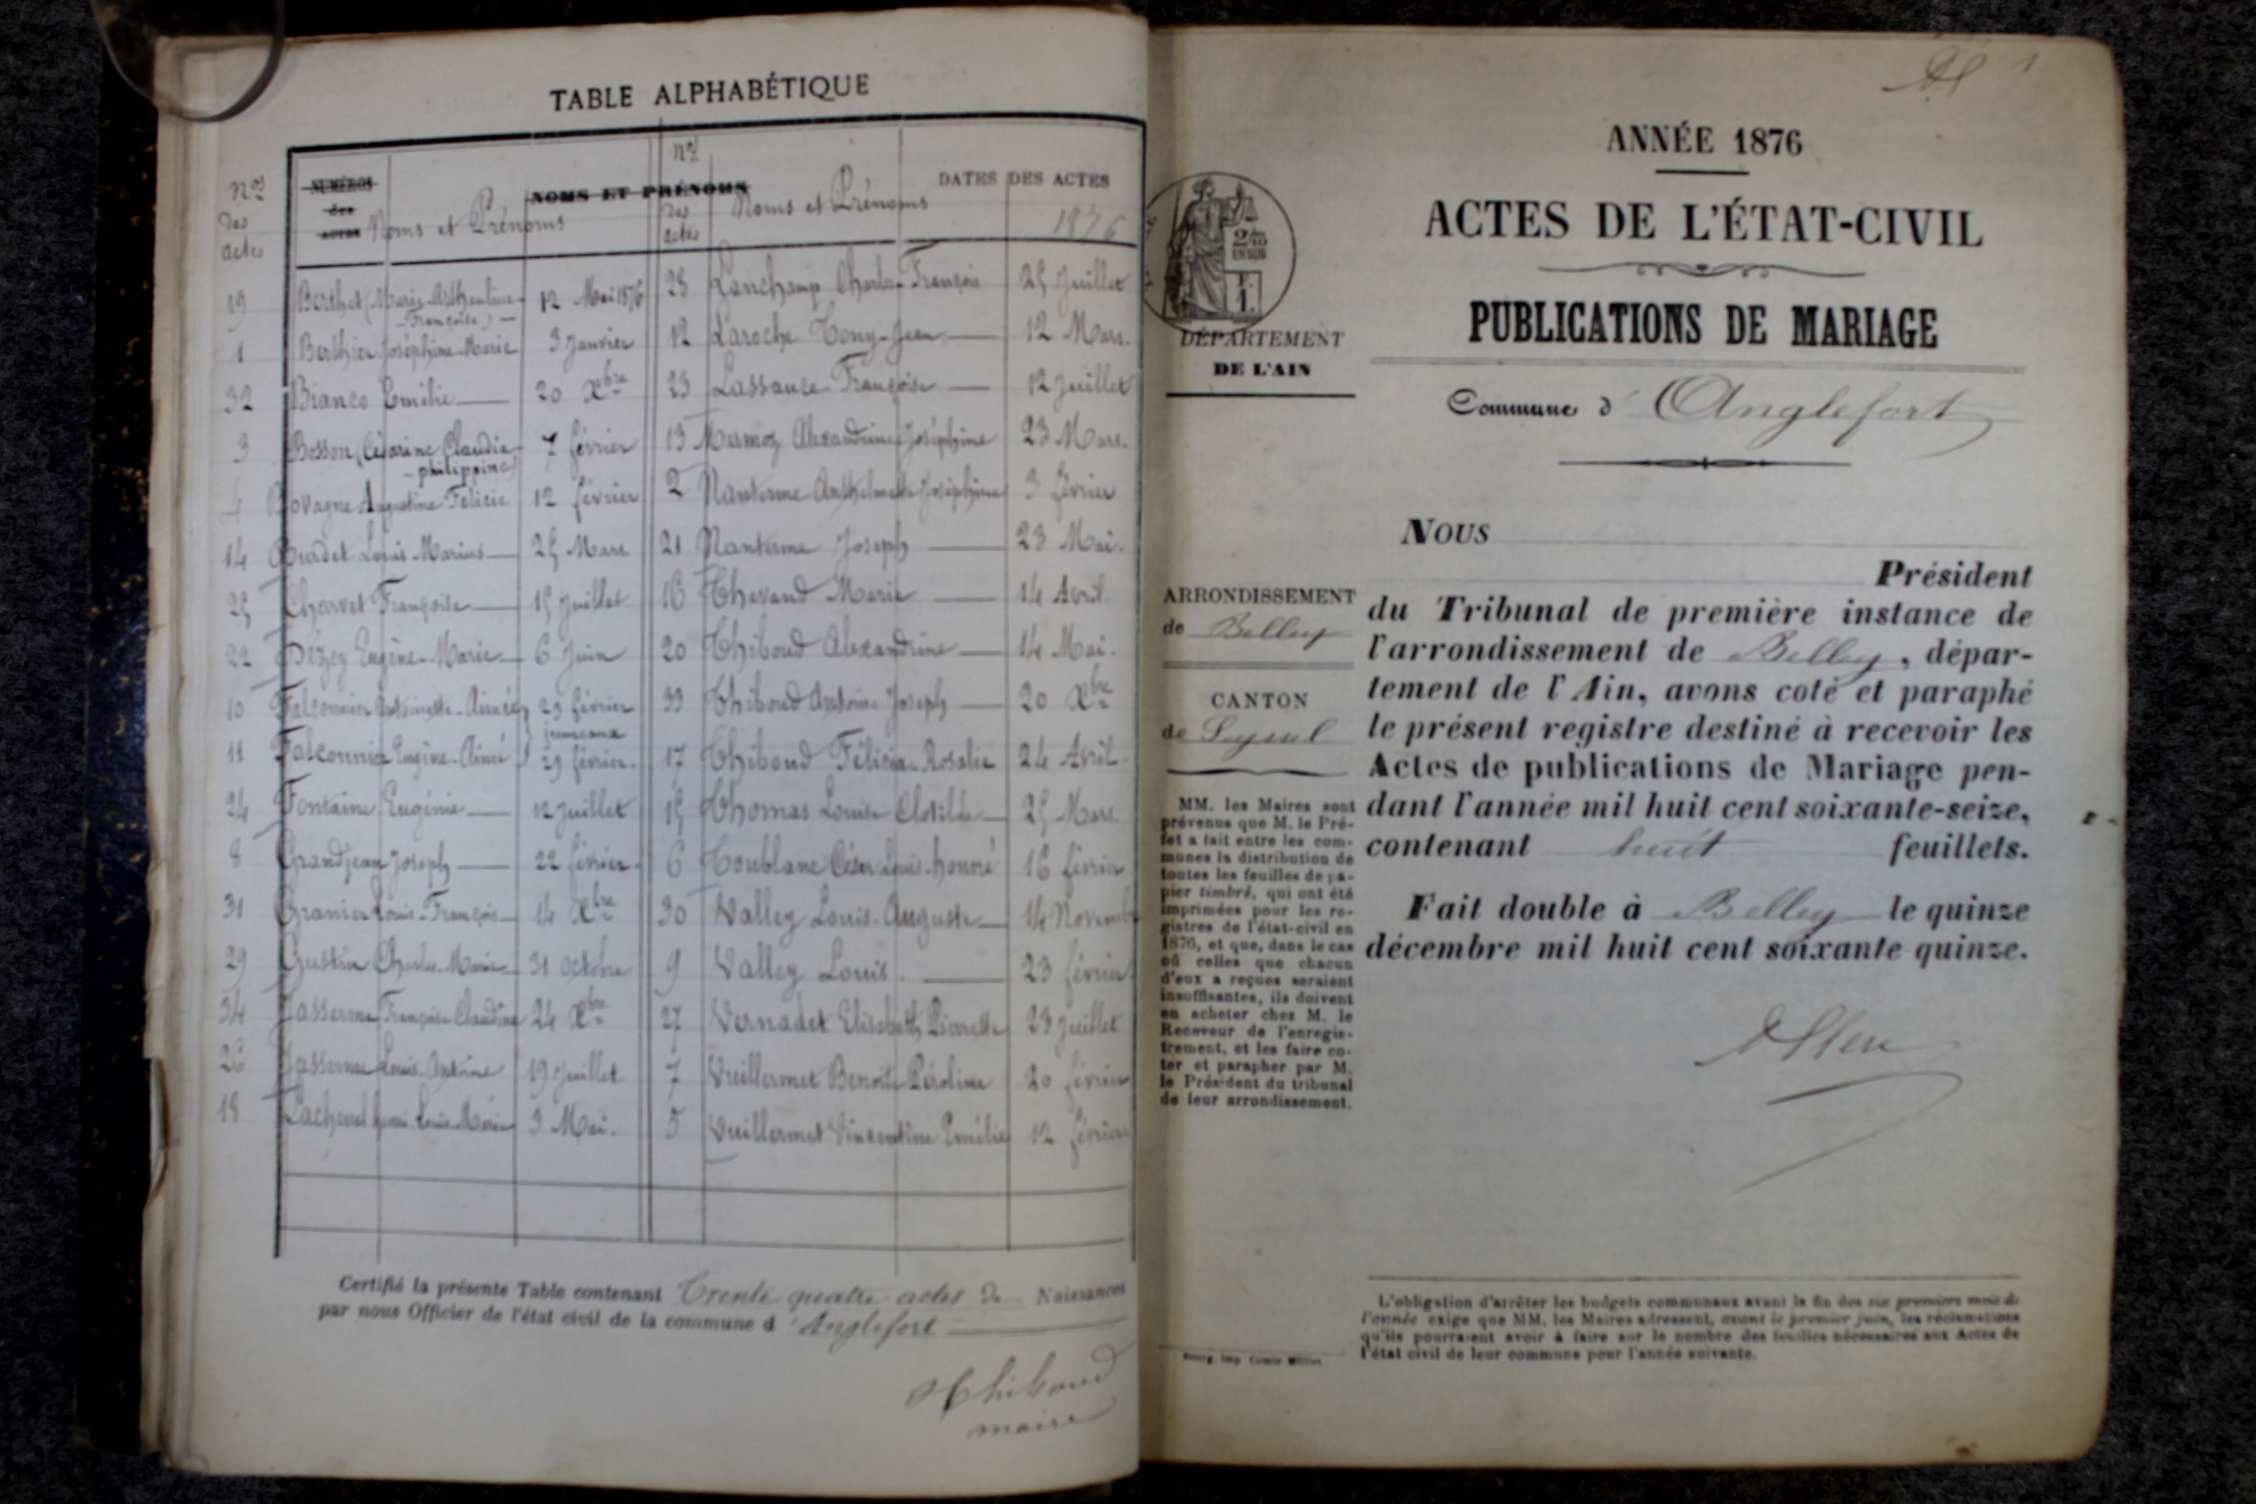 TABLE ALPHABÉTIQUE
Nos des actes
NUMÉROS des ACTES
Noms et Prénoms
NOMS ET PRÉNOMS
Nos des actes
Noms et Prénoms
DATES DES ACTES
1876
19 Berthet (Marie Anthelmine 12 Mai 1876 28 Lanchamp Charles François 25 Juillet
- Françoise) -
1 Berthier Joséphine Marie 3 Janvier 12 Laroche Tony Jean 12 Mars.
32 Bianco Emélie 20 Xbre 23 Lassauce Françoise 12 Juillet
3 Bosson (Césarine Claudia 7 février 13 Mermoz Alexandrine Joséphine 23 Mars.
- philippine)
4 Bovagne Augustine Félicie 12 février 2 Nanterme Anthelmette Joséphine 3 février
14 Louis Marius 25 Mars 21 Nanterme Joseph 23 Mai.
25 Charvet Françoise 15 Juillet 16 Thevand Marie 14 Avril
22 Dézez Eugène Marie 6 Juin 20 Thiboud Alexandrine 14 Mai.
10 Falconnier Antoinette Aimée 29 février 33 Thiboud Antoine Joseph 20 Xbre
jumeaux
11 Falconnier Eugène Aimé 29 février. 17 Thiboud Félicia Rosalie 24 Avril.
24 Fontaine Eugénie 12 Juillet 15 Thomas Louise Clotilde 25 Mars
8 Grandjean Joseph 22 février. 6 Toublanc César Louis honoré 16 février
31 Granier Louis François 14 Xbre 30 Valley Louis Auguste 14 Novembre
29 Gustin Charles Marie 31 Octobre 9 Valley Louis. 23 février
34 Jasserme Françoise Claudine 24 Xbre 27 Vernadet Elisabeth Pierrette 23 Juillet
26 Jasserme Louis Antoine 19 Juillet 7 Vuillermet Benoite Péroline 20 février
18 Lachenal Louis Marie 3 Mai. 5 Vuillermet Vincentine Emélie 12 février
Certifié la présente Table contenant Trente quatre actes de Naissances
par nous Officier de l'état civil de la commune d'Anglefort
Thiboud
maire
1
ANNÉE 1876
ACTES DE L'ÉTAT-CIVIL
PUBLICATIONS DE MARIAGE
Commune d'Anglefort
DÉPARTEMENT
DE L'AIN
ARRONDISSEMENT
de Belley
CANTON
de Seyssel
MM. les Maires sont
prévenus que M. le Pré-
fet a fait entre les com-
munes la distribution de
toutes les feuilles de pa-
pier timbré, qui ont été
imprimées pour les re-
gistres de l'état-civil en
1876, et que, dans le cas
où celles que chacun
d'eux a reçues seraient
insuffisantes, ils doivent
en acheter chez M. le
Receveur de l'enregis-
trement, et les faire co-
ter et parapher par M.
le Président du tribunal
de leur arrondissement.
NOUS
Président
du Tribunal de première instance de
l'arrondissement de Belley, dépar-
tement de l'Ain, avons coté et paraphé
le présent registre destiné à recevoir les
Actes de publications de Mariage pen-
dant l'année mil huit cent soixante-seize,
contenant huit feuillets.
Fait double à Belley le quinze
décembre mil huit cent soixante quinze.
L'obligation d'arrêter les budgets communaux avant la fin des six premiers mois de
l'année exige que MM. les Maires adressent, avant le premier juin, les réclamations
qu'ils pourraient avoir à faire sur le nombre des feuilles nécessaires aux Actes de
l'état civil de leur commune pour l'année suivante.
Bourg, imp. Comte Milliet